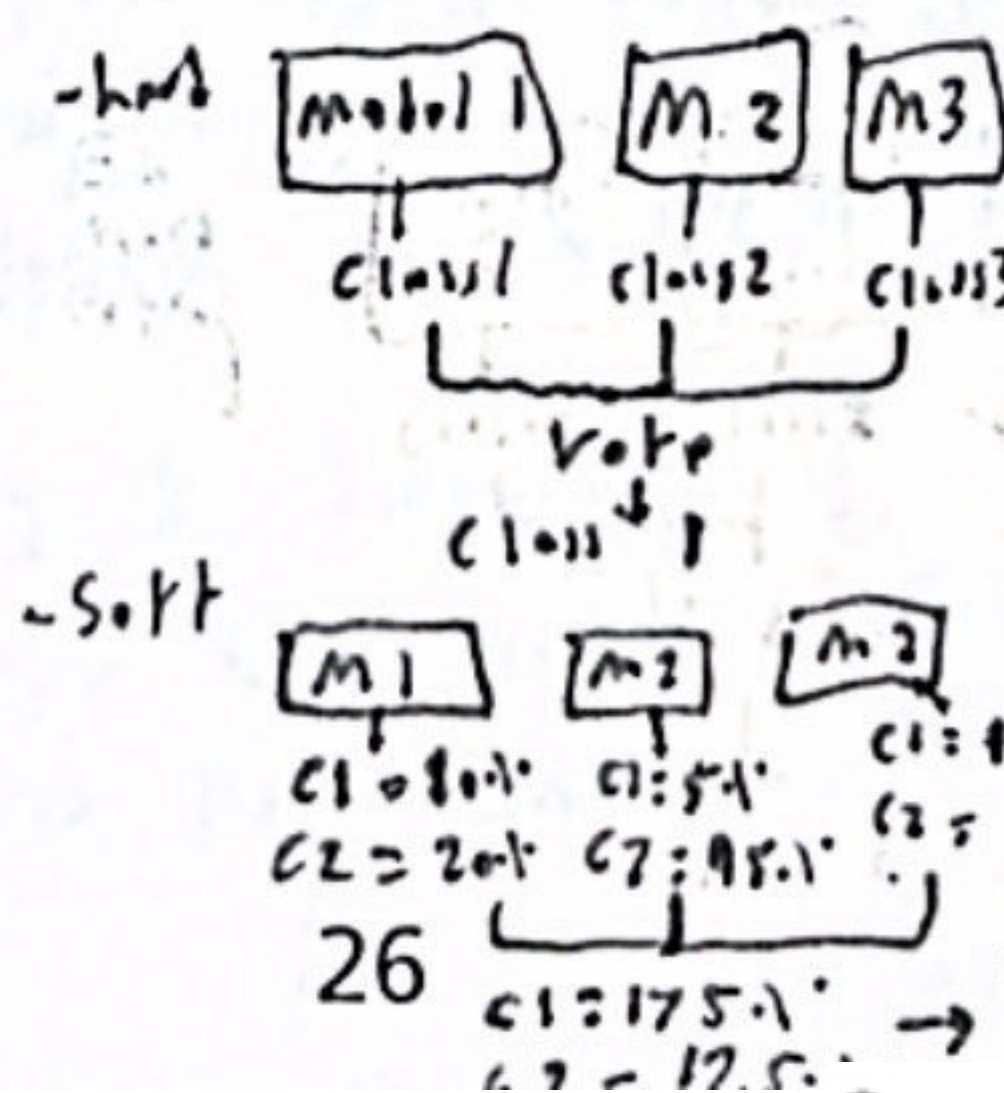 -hard
Model 1 M. 2 M3
Class1 Class2 Class3
Vote
Class 1
-Soft
M1 M2
C1 = 80% C1:5% C1:
C2 = 20% C2:95% C2 =
26
C1:175%